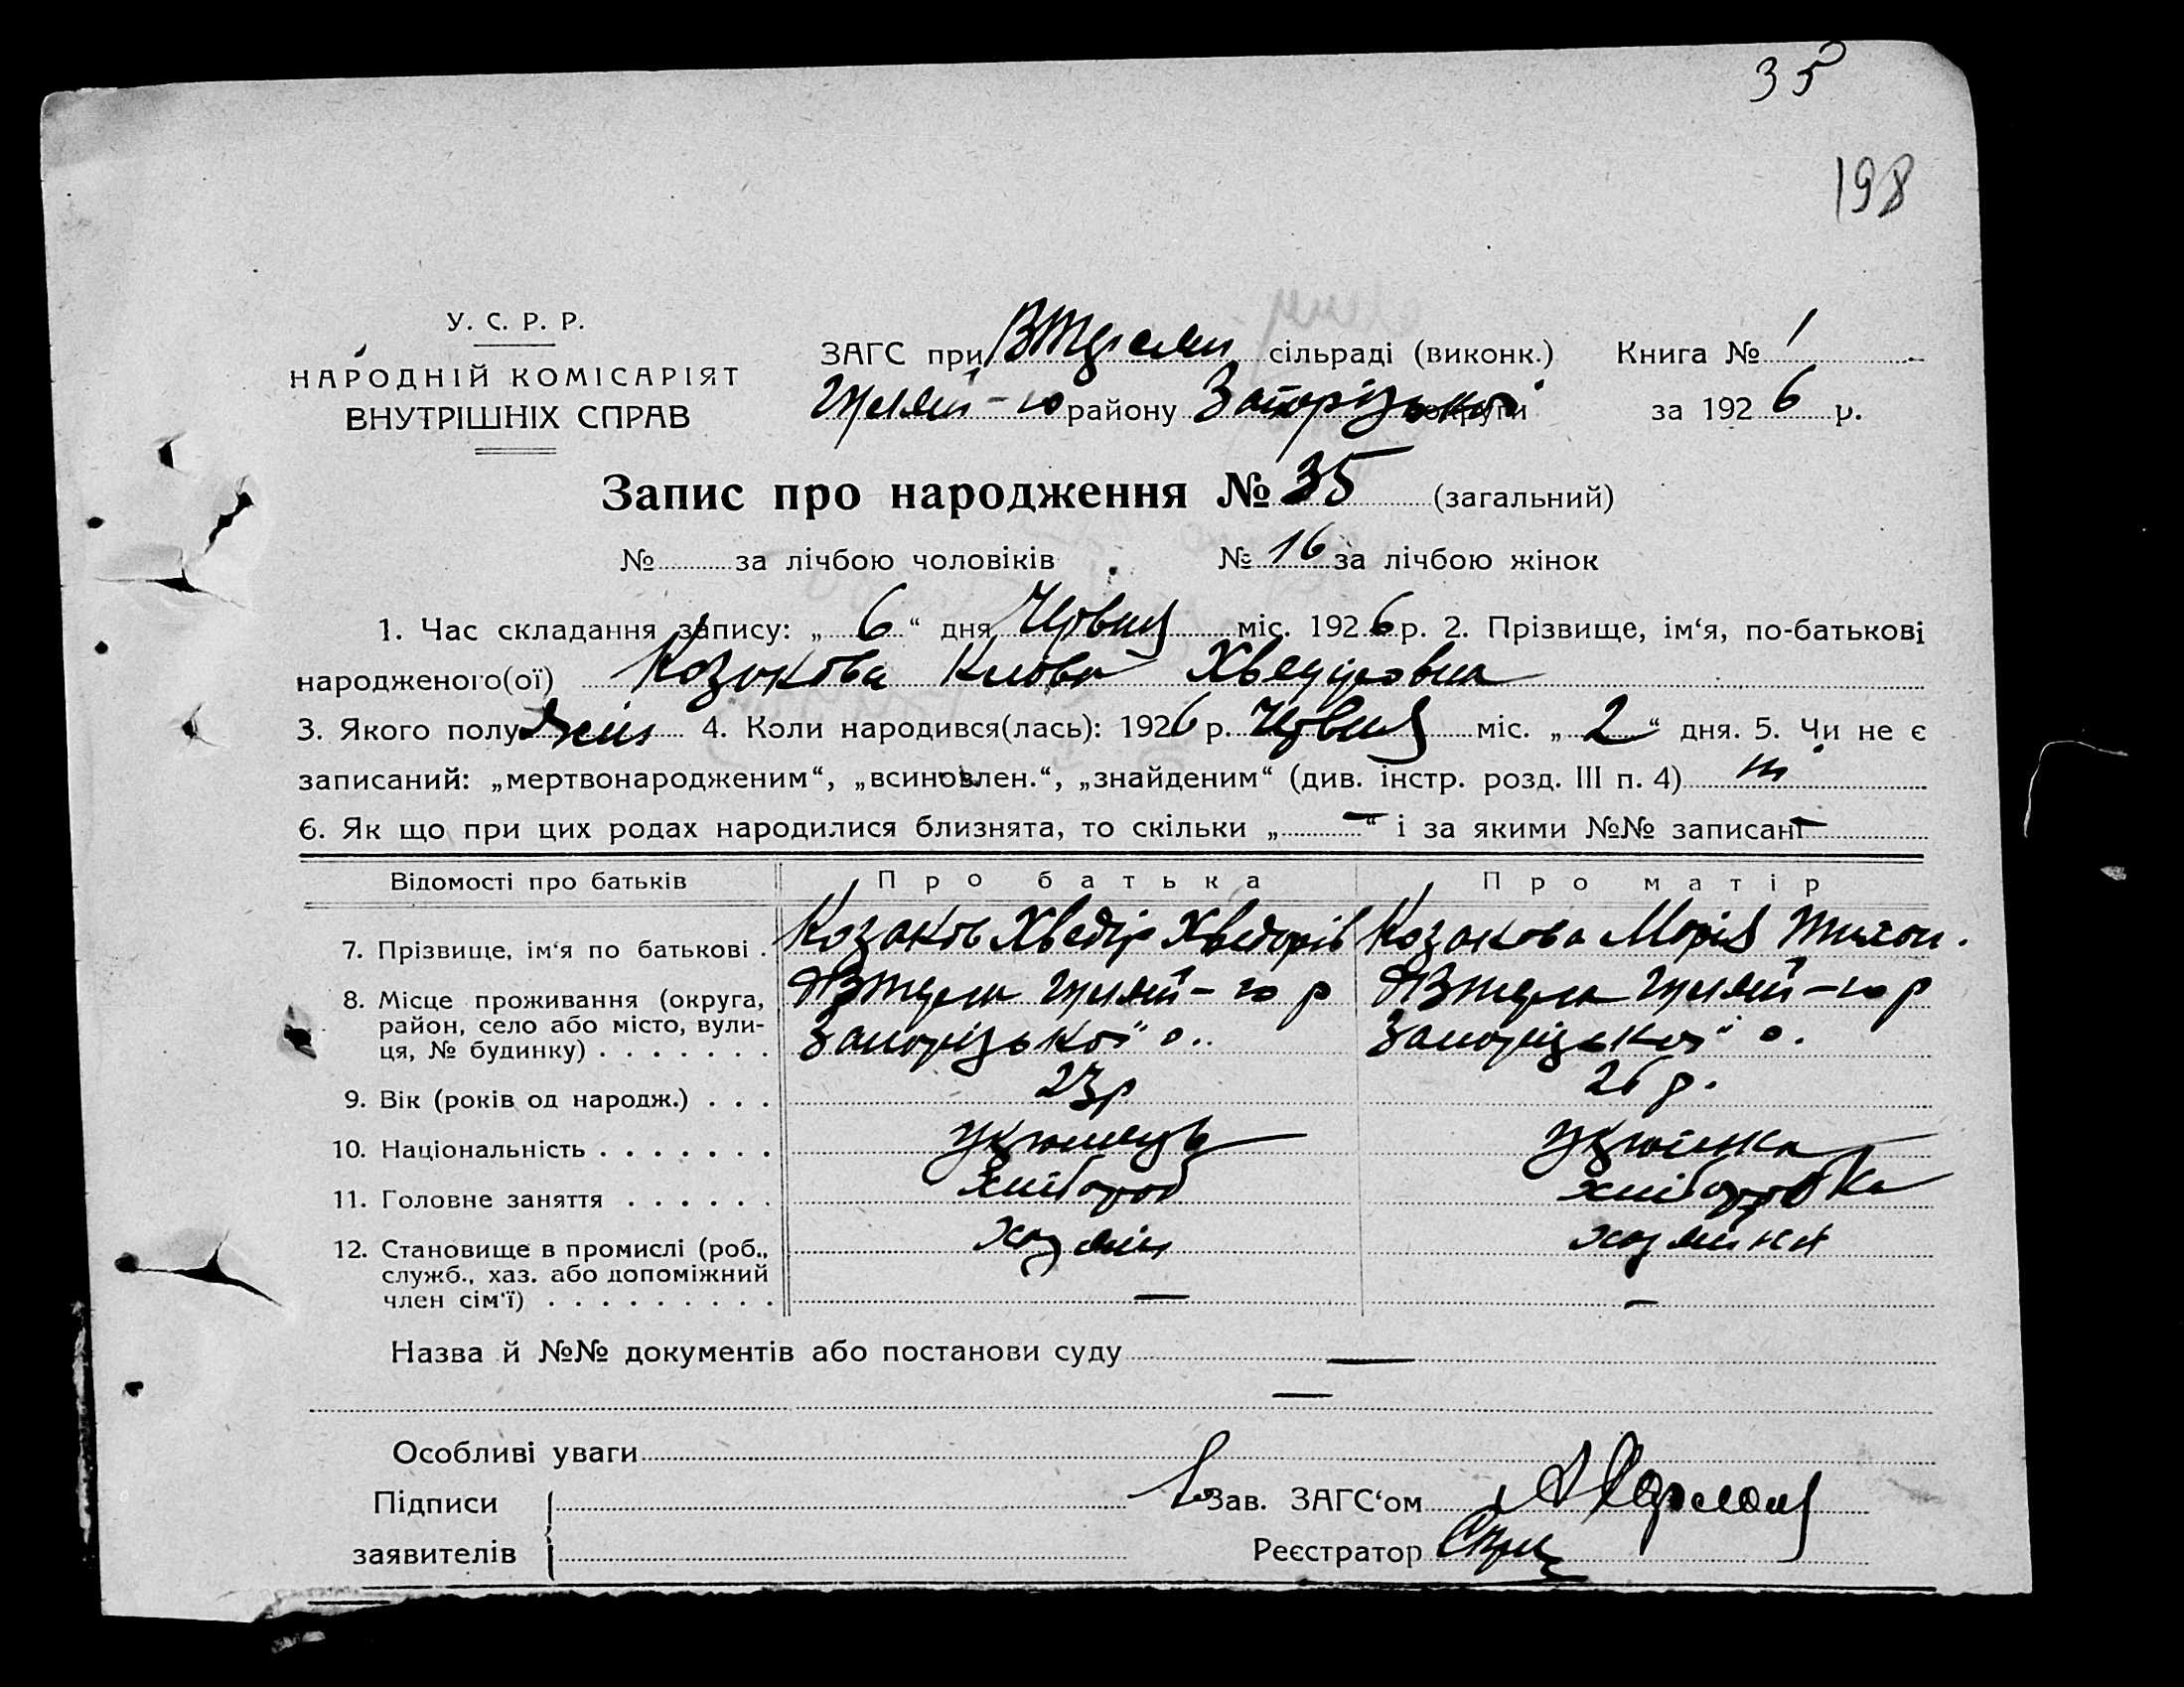 35
198
У. С. Р. Р.
НАРОДНІЙ КОМІСАРІЯТ
ВНУТРІШНІХ СПРАВ
ЗАГС при сільраді (виконк.) Книга № 1
району Запорізької округи за 1926 р.
Запис про народження № 35 (загальний)
№ за лічбою чоловіків № 16 за лічбою жінок
1. Час складання запису: „ 6 “ дня Червня міс. 1926 р. 2. Прізвище, ім‘я, по-батькові
народженого(ої) Козакова Хведіровна
3. Якого полу жін 4. Коли народився(лась): 1926 р. Червня міс. „ 2 “ дня. 5. Чи не є
записаний: „мертвонародженим“, „всиновлен.“, „знайденим“ (див. інстр. розд. III п. 4) ні
6. Як що при цих родах народилися близнята, то скільки „ — “ і за якими №№ записані —
Відомості про батьків Про батька Про матір
7. Прізвище, ім‘я по батькові . Козаков Хведір Хведорів Козакова Марія Тихон.
8. Місце проживання (округа,
район, село або місто, вули-
ця, № будинку) . . . . . . . Запорізької о. Запорізької о.
9. Вік (років од народж.) . . . 23 р 26 р.
10. Національність . . . . . . . українець українка
11. Головне заняття . . . . . . хлібороб хліборобка
12. Становище в промислі (роб., хазяїн хазяйка
служб., хаз. або допоміжний
член сім‘ї) . . . . . . . . . — —
Назва й №№ документів або постанови суду —
—
Особливі уваги
Підписи Зав. ЗАГС‘ом
заявителів Реєстратор